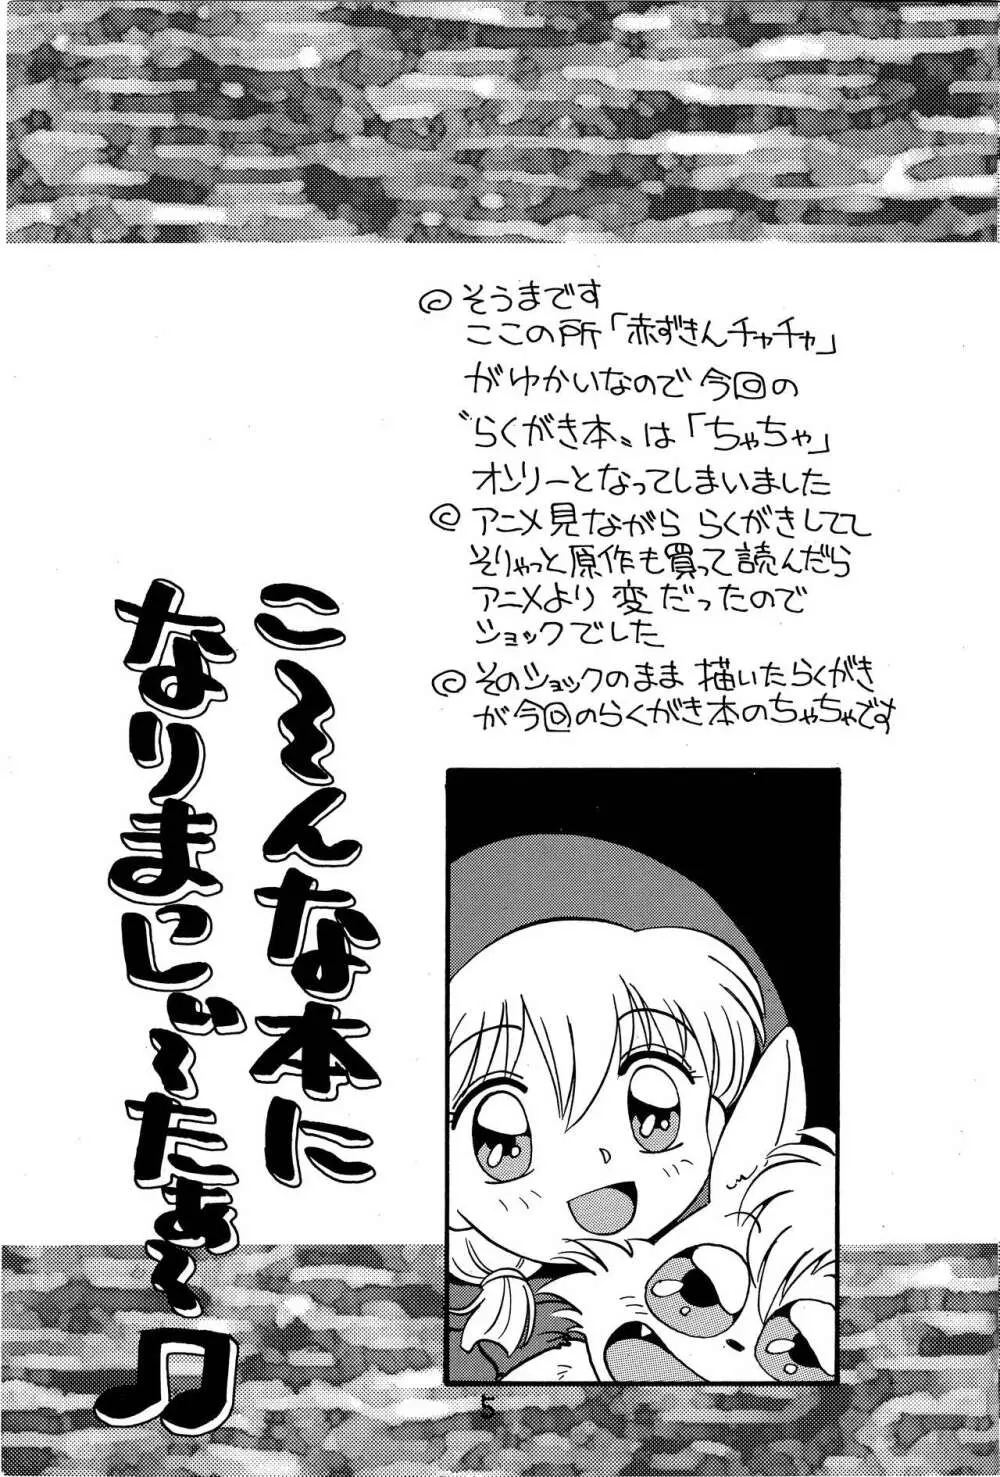 そうまです
ここの所「赤ずきんチャチャ」
がゆかいなので今回の
〝らくがき本〟は「ちゃちゃ」
オンリーとなってしまいました
アニメ見ながら らくがきしてて
そりゃっと原作も買って読んだら
アニメより 変だったので
ショックでした
そのショックのまま 描いたらくがき
が今回のらくがき本のちゃちゃです
こ〜んな本に
なりまし〜たぁ〜♫
5